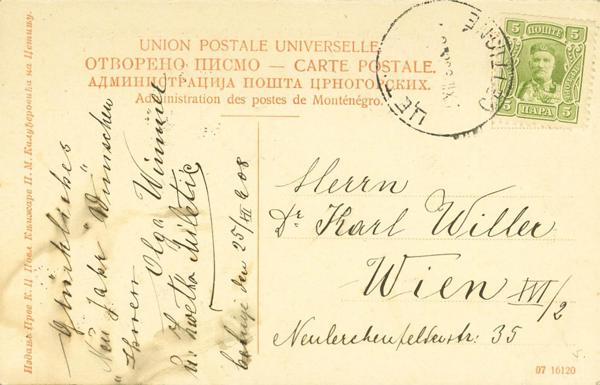 UNION POSTALE UNIVERSELLE.
ОТВОРЕНО ПИСМО — CARTE POSTALE.
АДМИНИСТРАЦИЈА ПОШТА ЦРНОГОРСКИХ.
Administration des postes de Monténégro.
5 ПОШТЕ 5
5 ПАРА 5
ЦЕТИЊЕ
CETTIGNE
Glückliches
Neu Jahr Wünschen
Ihnen Olga Wimmer
u. Zwetko Miletić
Cetinje den 25/XII 908
Herrn
Dr Karl Willer
Wien XVI/2
Neulerchenfelderstr: 35
07 16120
Издање Прве К. Ц Повл. Књижаре П. М. на Цетињу.